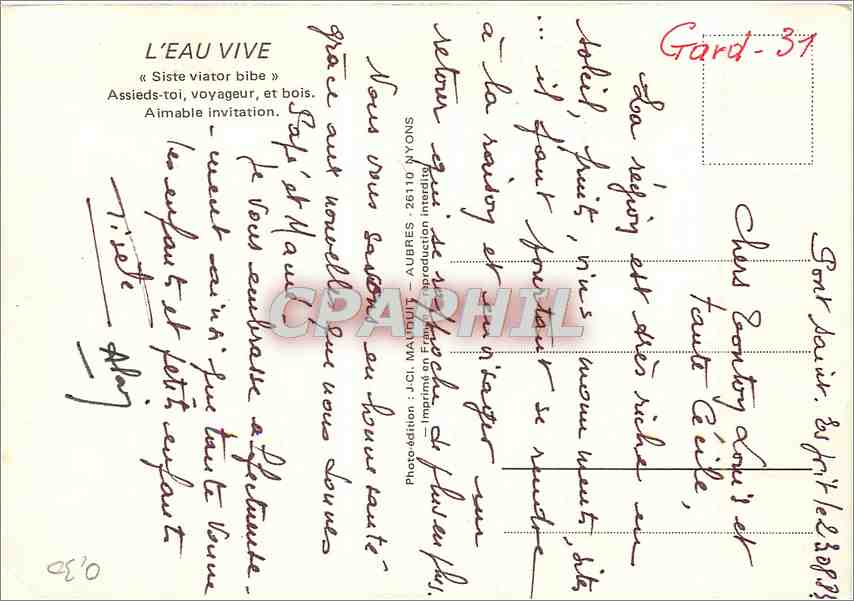 L'EAU VIVE
« Siste viator bibe »
Assieds-toi, voyageur, et bois.
Aimable invitation.
Gard - 31
Photo-édition : J.CI. MAUQUIT — AUBRES - 26110 NYONS
— Imprimé en France - reproduction interdite
CPAPHIL
Pont Saint. Esprit le 230883
Chers Tonton Louis et
tante Cécile,
La région est très riche en
soleil, fruits, vins, monuments, sites
... il faut pourtant se rendre
à la raison et envisager un
retour qui se rapproche de plus en plus.
Nous vous savons en bonne santé
grâce aux nouvelles que nous donnes
Papé et Mamé.
Je vous embrasse affectueuse-
-ment ainsi que tante
les enfants et petits enfants
Alain
0,30